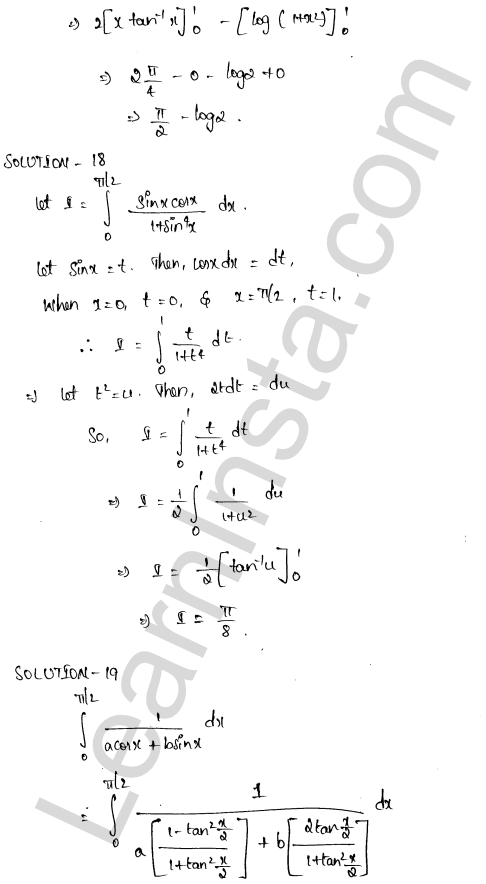 ⇒ 2[x tan⁻¹x]₀¹ - [log(1+x²)]₀¹
⇒ 2 π/4 - 0 - log2 + 0
⇒ π/2 - log2.
SOLUTION - 18
let I = ∫₀^(π/2) (sinx cosx)/(1+sin⁴x) dx.
let sinx = t. Then, cosx dx = dt,
When x=0, t=0, & x=π/2, t=1.
∴ I = ∫₀¹ t/(1+t⁴) dt.
⇒ let t²=u. Then, 2tdt = du
So, I = ∫₀¹ t/(1+t⁴) dt
⇒ I = 1/2 ∫₀¹ 1/(1+u²) du
⇒ I = 1/2 [tan⁻¹u]₀¹
⇒ I = π/8.
SOLUTION - 19
∫₀^(π/2) 1/(acosx + bsinx) dx
= ∫₀^(π/2) 1/(a[(1-tan² x/2)/(1+tan² x/2)] + b[(2tan x/2)/(1+tan² x/2)]) dx
LearnInsta.com